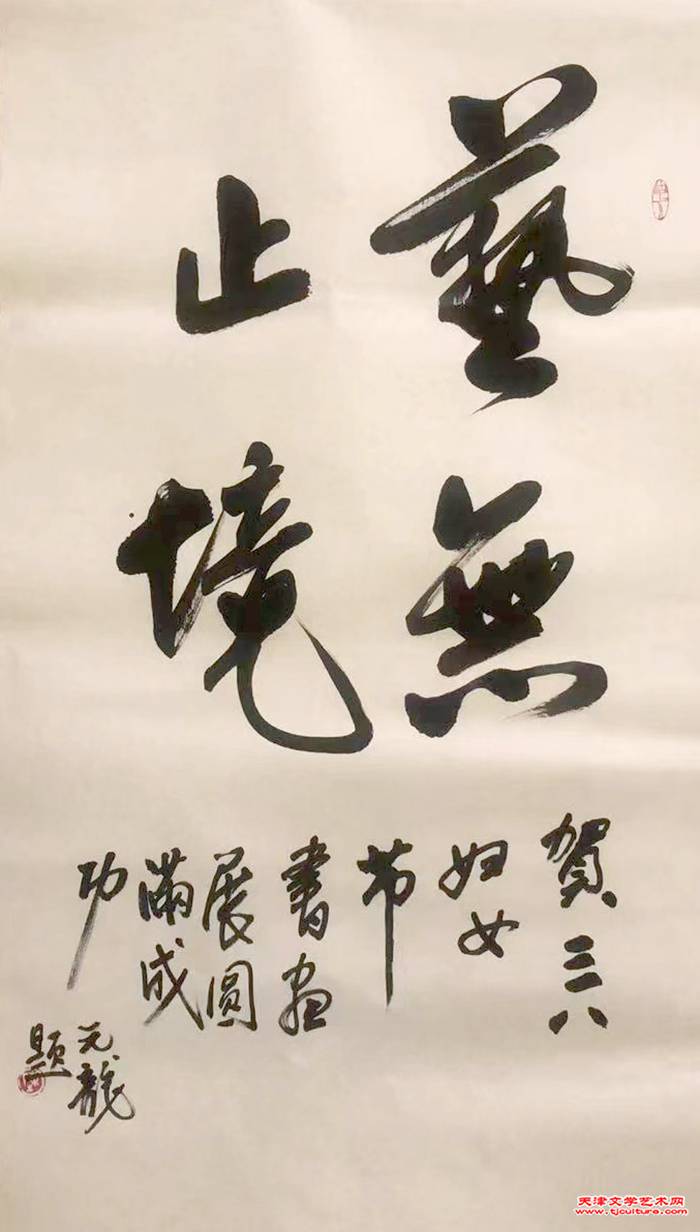 藝無
止境
賀三八
妇女
节
書画
展圆
滿成
功
元龍
题
天津文学艺术网
www.tjculture.com